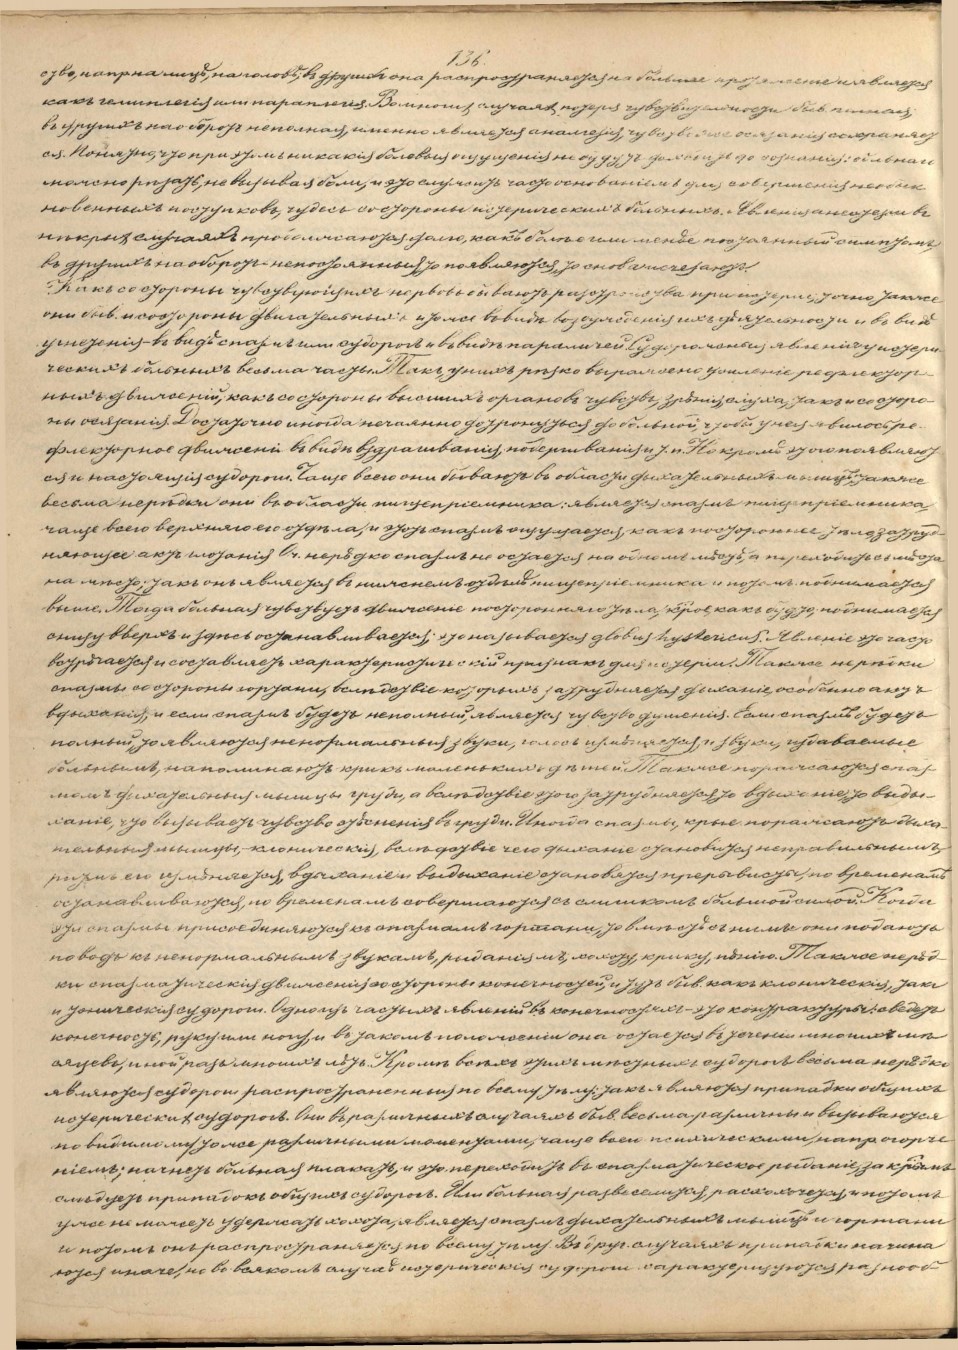 136.
ство, напр на лицѣ, на головѣ, въ другихъ она распространяется на большее протяженіе и является
какъ гемиплегія или параплегія. Во многихъ случаяхъ потеря чувствительности быв. полная,
въ другихъ наоборотъ неполная, именно является аналгезія, чувство же осязанія сохраняет
ся. Понятно, что при этомъ никакія болевыя ощущенія не будутъ доходить до сознанія: больная
можно рѣзать, не вызывая боли, и это служитъ часто основаніемъ для совершенія необык
новенныхъ поступковъ, чудесъ со стороны истерическихъ больныхъ. Явленія анестезіи въ
нѣкрыхъ случаяхъ продолжаются долго, какъ болѣе или менѣе постоянный симптомъ,
въ другихъ наоборотъ непостоянныя, то появляются, то снова исчезаютъ.
Какъ со стороны чувствующихъ нервовъ бываютъ разстройства при истеріи, точно также
они быв. и со стороны двигательныхъ и тоже въ видѣ возбужденія ихъ дѣятельности и въ видѣ
угнетенія – въ видѣ спазмъ или судорогъ и въ видѣ параличей. Судорожныя явленія у истери
ческихъ больныхъ весьма часты. Такъ, у нихъ рѣзко выражено усиленіе рефлектор-
ныхъ движеній, какъ со стороны высшихъ органовъ чувствъ, зрѣнія, слуха, такъ и со сторо-
ны осязанія. Достаточно иногда нечаянно дотронуться до больной, чтобы у нея явилось ре-
флекторное движеніе въ видѣ вздрагиванія, повертыванія и т. п. Но кромѣ этого появляют
ся и настоящія судороги. Чаще всего они бываютъ въ области дыхательныхъ мышцъ, также
весьма нерѣдки они въ области пищепріемника: является спазмъ пищепріемника,
чаще всего верхняго его отдѣла, и этотъ спазмъ ощущается, какъ постороннее тѣло, затруд-
няющее актъ глотанія. Оч. нерѣдко спазмъ не остается на одномъ мѣстѣ, а переходитъ съ мѣста
на мѣсто; такъ онъ является въ нижнемъ отдѣлѣ пищепріемника и потомъ поднимается
выше. Тогда больная чувствуетъ движеніе посторонняго тѣла, крое какъ будто, поднимается
снизу вверхъ и здѣсь останавливается; это называется globus hystericus. Явленіе это часто
встрѣчается и составляетъ характеристическій признакъ для истеріи. Также нерѣдки
спазмы со стороны гортани, вслѣдствіе которыхъ затрудняется дыханіе, особенно актъ
вдыханія, и если спазмъ будетъ неполный, является чувство душенія. Если спазмъ будетъ
полный, то являются ненормальныя звуки, голосъ измѣняется, и звуки, издаваемые
больнымъ, напоминаютъ крикъ маленькихъ дѣтей. Также поражаются спаз-
момъ дыхательныя мышцы груди, а вслѣдствіе этого затрудняется то вдыханіе, то выды-
ханіе, что вызываетъ чувство стѣсненія въ груди. Иногда спазмы, крые поражаютъ дыха-
тельныя мышцы, – клоническія, вслѣдствіе чего дыханіе становится неправильнымъ,
ритмъ его измѣняется, вдыханіе и выдыханіе становятся прерывисты, по временамъ
останавливаются, по временамъ совершаются съ слишкомъ большой силой. Когда
эти спазмы присоединяются къ спазмамъ гортани, то вмѣстѣ съ ними они подаютъ
поводъ къ ненормальнымъ звукамъ, рыданіямъ, хохоту, крику, пѣнію. Также нерѣд-
ки спазматическія движенія со стороны конечностей, и тутъ быв. какъ клоническія, так
и тоническія судороги. Одно изъ частыхъ явленій въ конечностяхъ – это контрактуры: сведетъ
конечность, руку или ногу, и въ такомъ положеніи она остается въ теченіи многихъ мѣ
сяцевъ, иной разъ многихъ лѣтъ. Кромѣ всѣхъ этихъ мѣстныхъ судорогъ весьма нерѣдко
являются судороги распространенныя по всему тѣлу; такъ являются припадки общихъ
истерическихъ судорогъ. Они въ различныхъ случаяхъ быв. весьма различны и вызываются
по видимому тоже различными моментами, чаще всего психическими, напр огорче
ніемъ; начнетъ больная плакать, и это переходитъ въ спазматическое рыданіе, за крымъ
слѣдуетъ припадокъ общихъ судорогъ. Или больная развеселится, расхохочется, и потомъ
уже не можетъ удержать хохота, является спазмъ дыхательныхъ мышцъ и гортани
и потомъ онъ распространяется по всему тѣлу. Въ друг. случаяхъ припадки начина
ются иначе, но во всякомъ случаѣ истерическія судороги характеризуются разнооб-